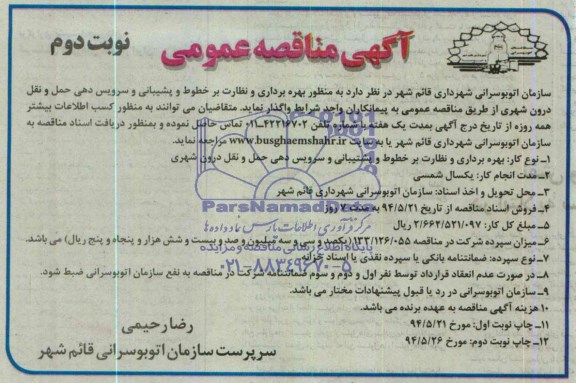 آگهی مناقصه عمومی
نوبت دوم
سازمان اتوبوسرانی شهرداری قائم شهر در نظر دارد به منظور بهره برداری و نظارت بر خطوط و پشتیبانی و سرویس دهی حمل و نقل
درون شهری از طریق مناقصه عمومی به پیمانکاران واجد شرایط واگذار نماید. متقاضیان می توانند به منظور کسب اطلاعات بیشتر
همه روزه از تاریخ درج آگهی بمدت یک هفته با شماره تلفن ۴۲۲۱۶۷۰۲-۰۱۱ تماس حاصل نموده و بمنظور دریافت اسناد مناقصه به
سازمان اتوبوسرانی شهرداری قائم شهر یا به سایت www.busghaemshahr.ir مراجعه نماید.
۱ـ نوع کار: بهره برداری و نظارت بر خطوط و پشتیبانی و سرویس دهی حمل و نقل درون شهری
۲ـ مدت انجام کار: یکسال شمسی
۳ـ محل تحویل و اخذ اسناد: سازمان اتوبوسرانی شهرداری قائم شهر
۴ـ فروش اسناد مناقصه از تاریخ ۹۴/۵/۲۱ به مدت ۷ روز
۵ـ مبلغ کل کار: ۲/۶۶۲/۵۲۱/۰۹۷ ریال
۶ـ میزان سپرده شرکت در مناقصه ۱۳۳/۱۲۶/۰۵۵ (یکصد و سی و سه میلیون و صد و بیست و شش هزار و پنجاه و پنج ریال) می باشد.
۷ـ نوع سپرده: ضمانتنامه بانکی یا سپرده نقدی یا اسناد خزانه
۸ـ در صورت عدم انعقاد قرارداد توسط نفر اول و دوم و سوم ضمانتنامه شرکت در مناقصه به نفع سازمان اتوبوسرانی ضبط شود.
۹ـ سازمان اتوبوسرانی در رد یا قبول پیشنهادات مختار می باشد.
۱۰ـ هزینه آگهی مناقصه به عهده برنده می باشد.
۱۱ـ چاپ نوبت اول: مورخ ۹۴/۵/۲۱
۱۲ـ چاپ نوبت دوم: مورخ ۹۴/۵/۲۶
رضا رحیمی
سرپرست سازمان اتوبوسرانی قائم شهر
ParsNamadData
مرکز فرآوری اطلاعات پارس نماد داده ها
پایگاه اطلاع رسانی مناقصه و مزایده
۰۲۱-۸۸۳۴۹۶۷۰-۵